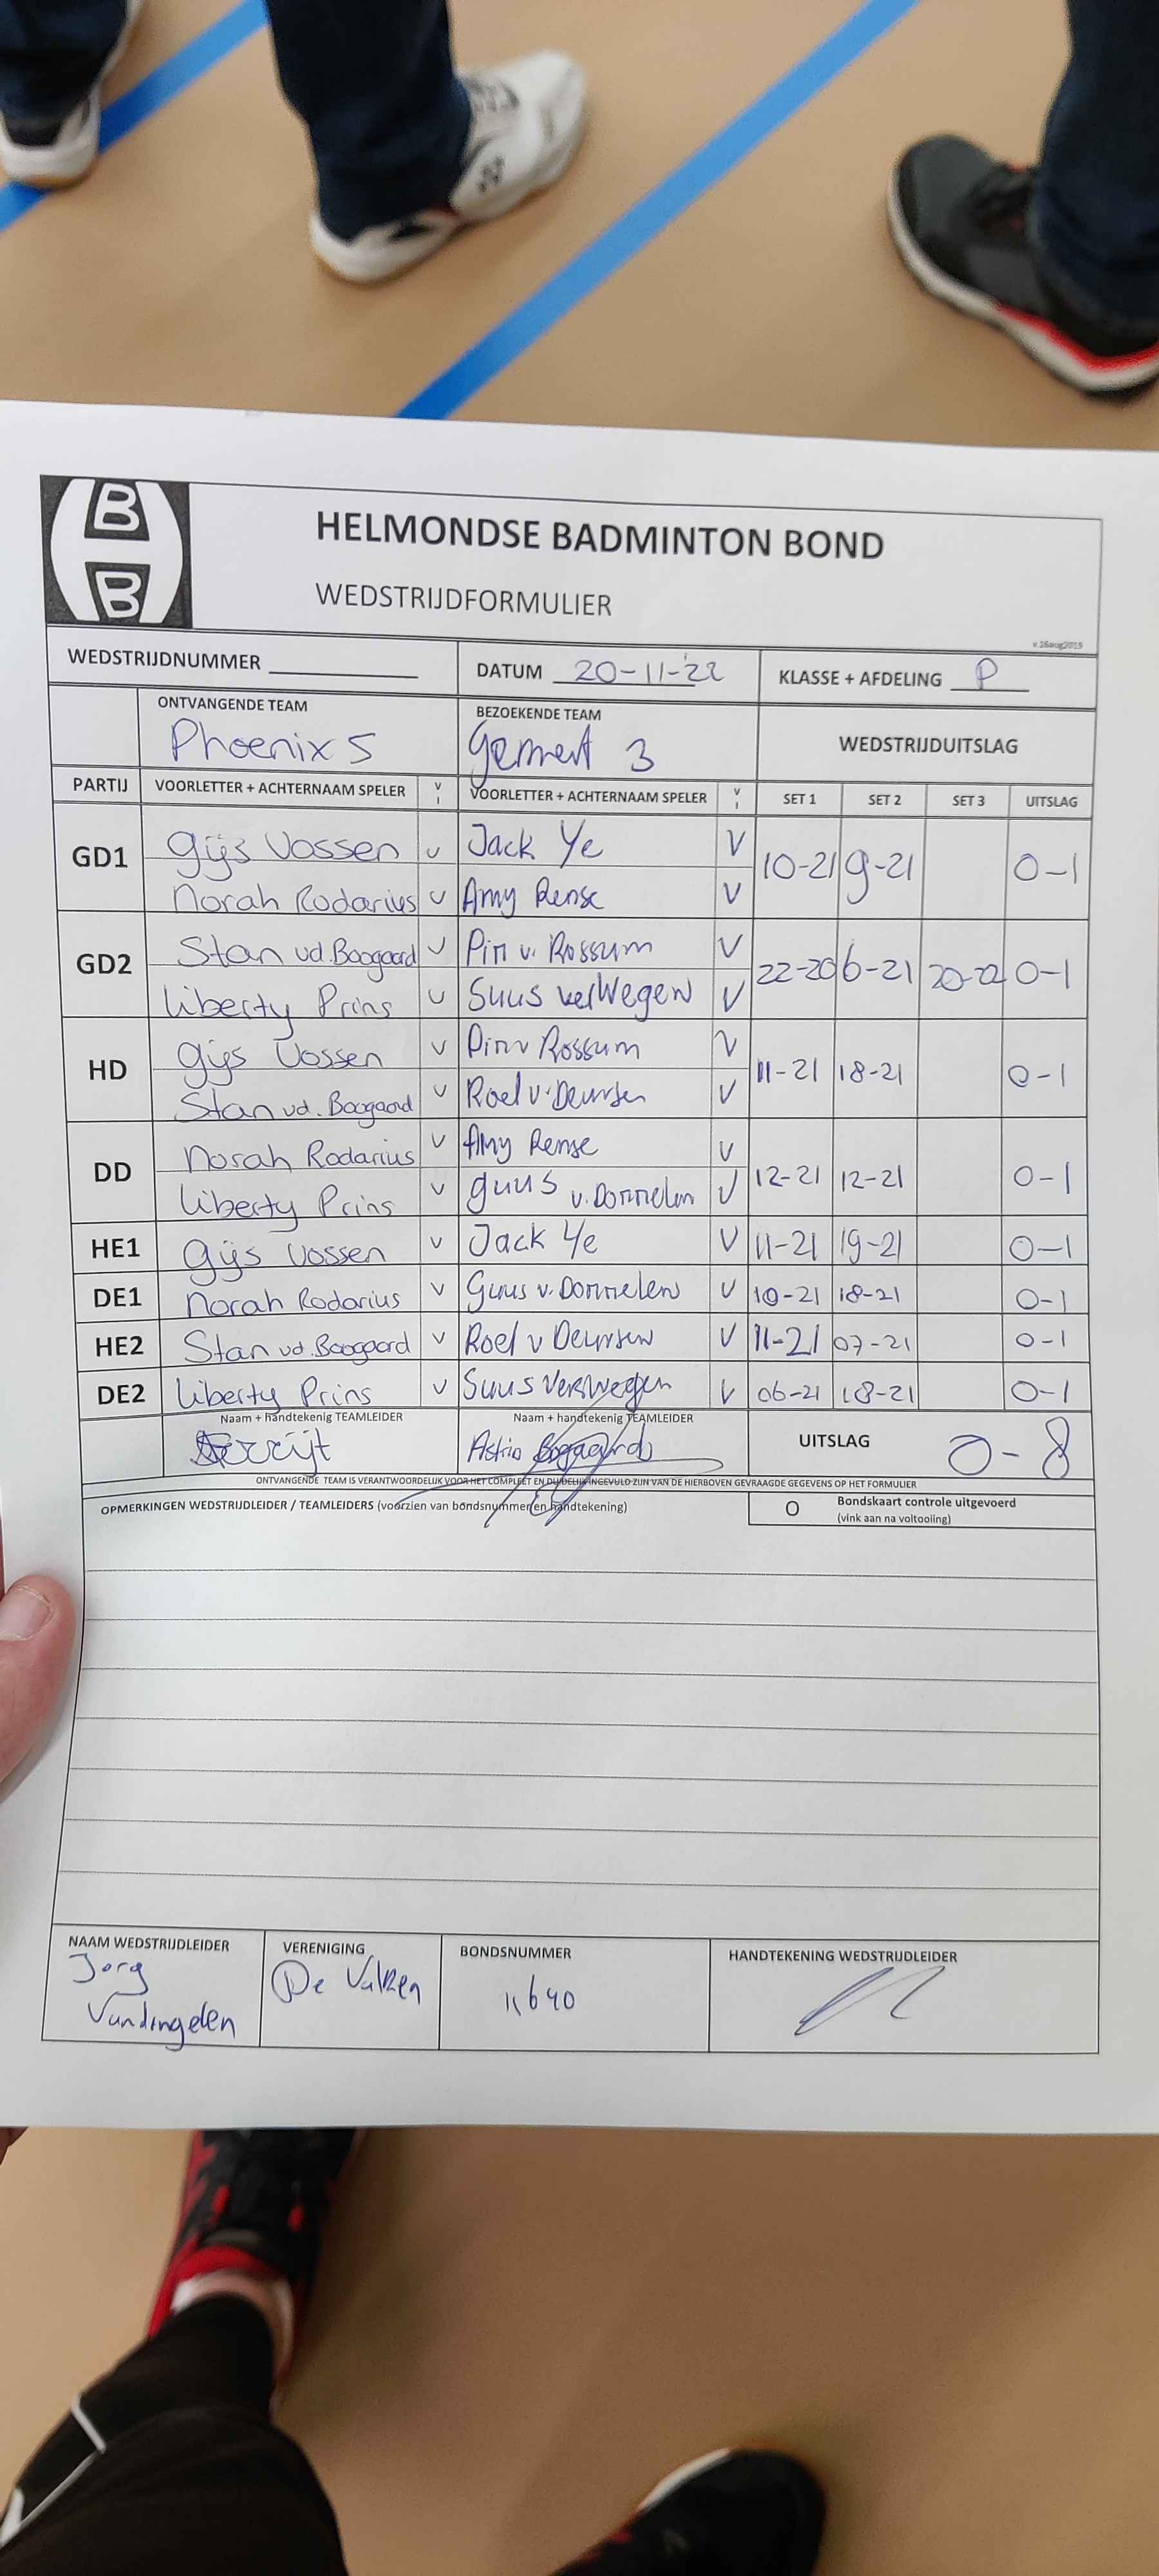 HELMONDSE BADMINTON BOND
WEDSTRIJDFORMULIER
v.16aug2019
WEDSTRIJDNUMMER
DATUM 20-11-'22
KLASSE + AFDELING P
ONTVANGENDE TEAM
Phoenix 5
BEZOEKENDE TEAM
Gemert 3
WEDSTRIJDUITSLAG
PARTIJ VOORLETTER + ACHTERNAAM SPELER V I VOORLETTER + ACHTERNAAM SPELER V I SET 1 SET 2 SET 3 UITSLAG
GD1 Gijs Vossen v Jack Ye V 10-21 9-21 0-1
Norah Rodarius v Amy Rense V
GD2 Stan vd. Boogaard v Pim v. Rossum V 22-20 6-21 20-22 0-1
Liberty Prins v Suus verwegen V
HD Gijs Vossen v Pim v Rossum V 11-21 18-21 0-1
Stan vd. Boogaard v Roel v. Deursen V
DD Norah Rodarius v Amy Rense v 12-21 12-21 0-1
Liberty Prins v guus v. Dommelen V
HE1 Gijs Vossen v Jack Ye V 11-21 19-21 0-1
DE1 Norah Rodarius v Guus v. Dommelen V 10-21 18-21 0-1
HE2 Stan vd. Boogaard v Roel v Deursen V 11-21 07-21 0-1
DE2 Liberty Prins v Suus Verwegen V 06-21 18-21 0-1
Naam + handtekenig TEAMLEIDER
Naam + handtekenig TEAMLEIDER
Astrid Bogaards
UITSLAG 0-8
ONTVANGENDE TEAM IS VERANTWOORDELIJK VOOR HET COMPLEET EN DUIDELIJK INGEVULD ZIJN VAN DE HIERBOVEN GEVRAAGDE GEGEVENS OP HET FORMULIER
OPMERKINGEN WEDSTRIJDLEIDER / TEAMLEIDERS (voorzien van bondsnummer en handtekening)
O Bondskaart controle uitgevoerd
(vink aan na voltooiing)
NAAM WEDSTRIJDLEIDER
Jorg
Vandingelen
VERENIGING
De Valken
BONDSNUMMER
11640
HANDTEKENING WEDSTRIJDLEIDER